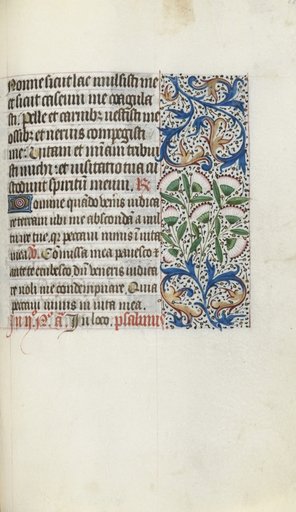 Nonne sicut lac mulsisti me
et sicut caseum me coagula
sti. Pelle et carnibus vestisti me
ossibus et nervis compegisti
me: Vitam et miam tribui
sti michi: et visitatio tua cu
stodivit spiritum meum. R
Domine quando veneris iudica
re terram ubi me abscondam a vul
tu ire tue, quia peccavi nimis in vita
mea. Comissa mea pavesco et
ante te erubesco dum veneris iudica
re noli me condempnare. Quia
peccavi nimis in vita mea.
In loco. psalmus